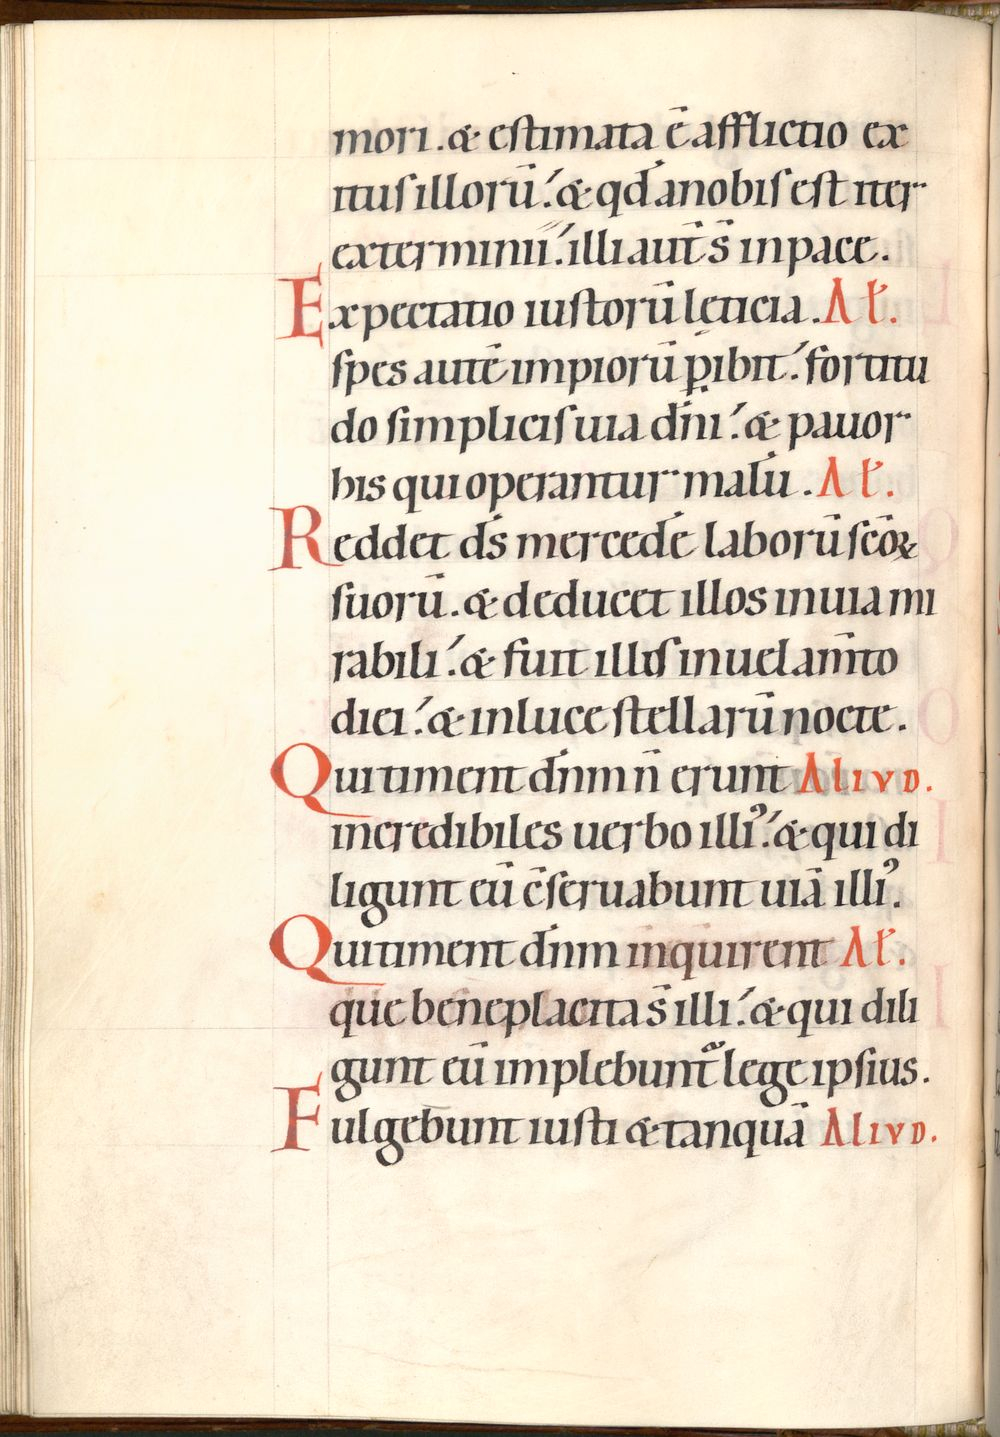 mori. & estimata ē afflictio ex
itus illorū: & qđ a nobis est iter
exterminii: illi aut̄ s̄ in pace.
Expectatio iustorū leticia. Al'.
spes autē impiorū ꝑibit: fortitu
do simplicis uia dn̄i: & pauor
his qui operantur malū. Al'.
Reddet ds̄ mercedē laborū scōꝝ
suorū. & deducet illos in uia mi
rabili: & fuit illis in uelam̄to
diei: & in luce stellarū nocte.
Qui timent dn̄m n̄ erunt Aliud.
incredibiles uerbo illiꝰ: & qui di
ligunt eū c̄seruabunt uiā illiꝰ.
Qui timent dn̄m inquirent Al'.
que beneplacita s̄ illi: & qui dili
gunt eū implebunt̄ lege ipsius.
Fulgebunt iusti & tanquā Aliud.